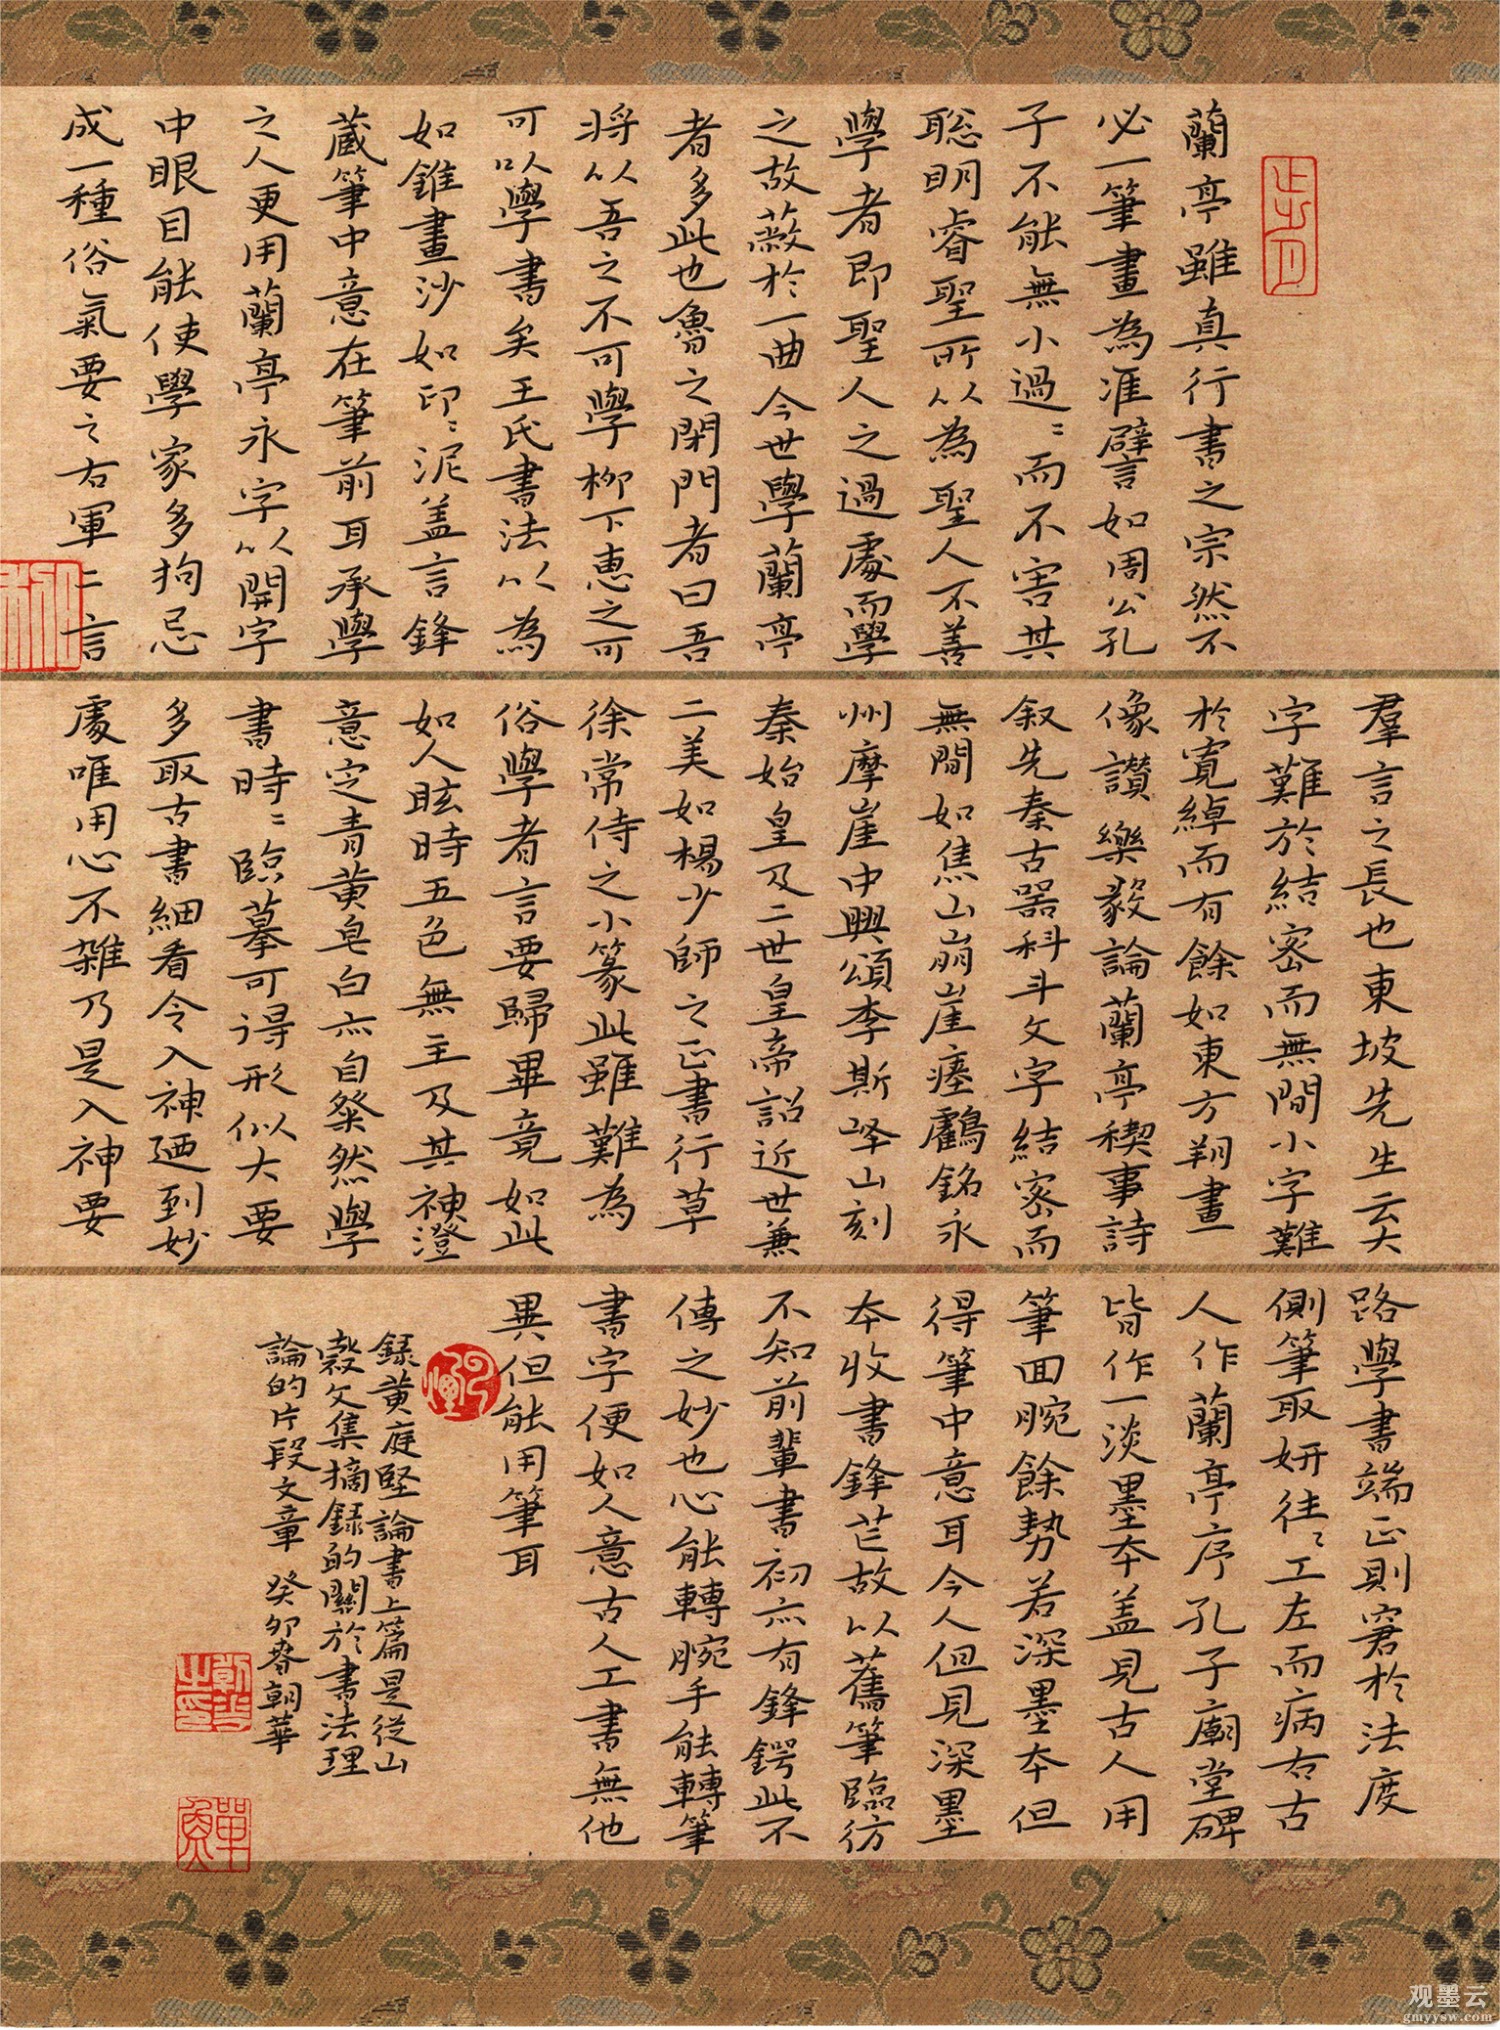 蘭亭雖真行書之宗然不
必一筆畫為准譬如周公孔
子不能無小過〻而不害其
聡明睿聖所以為聖人不善
學者即聖人之過處而學
之故蔽於一曲今世學蘭亭
者多此也魯之閉門者曰吾
将以吾之不可學柳下惠之可
可以學書矣王氏書法以為
如錐畫沙如印〻泥盖言鋒
蔵筆中意在筆前耳承學
之人更用蘭亭永字以開字
中眼目能使學家多拘忌
成一種俗氣要之右軍二言
羣言之長也東坡先生云大
字難於結密而無間小字難
於寬綽而有餘如東方朔畫
像讃樂毅論蘭亭禊事詩
叙先秦古器科斗文字結密而
無間如焦山崩崖瘞鸖銘永
州摩崖中興頌李斯嶧山刻
秦始皇及二世皇帝詔近世兼
二美如楊少師之正書行草
徐常侍之小篆此雖難為
俗學者言要歸畢竟如此
如人眩時五色無主及其神澄
意定青黄皂白亦自粲然學
書時〻臨摹可得形似大要
多取古書細看令入神廼到妙
處唯用心不雜乃是入神要
路學書端正則窘於法度
側筆取妍往〻工左而病右古
人作蘭亭序孔子廟堂碑
皆作一淡墨夲盖見古人用
筆囬腕餘勢若深墨夲但
得筆中意耳今人但見深墨
夲收書鋒芒故以舊筆臨仿
不知前輩書初亦有鋒鍔此不
傳之妙也心能轉腕手能轉筆
書字便如人意古人工書無他
異但能用筆耳
録黄庭堅論書上篇是從山
榖文集摘録的關於書法理
論的片段文章 癸卯春朝華
观墨云
gmyysw.com